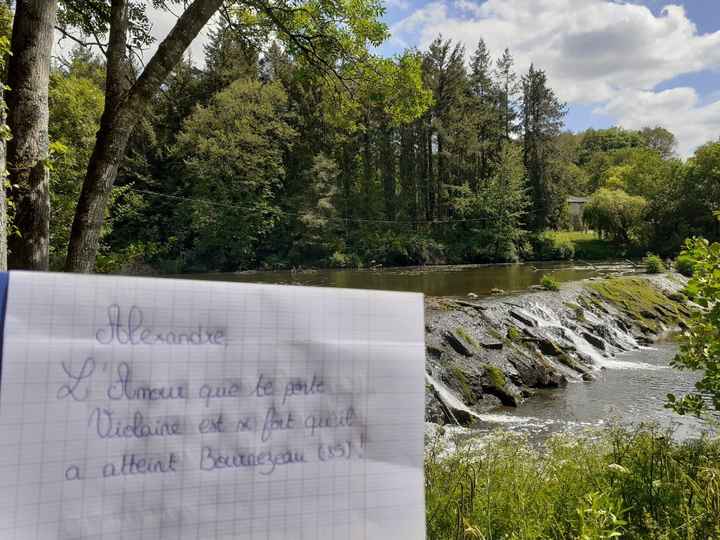 Alexandre,
L'Amour que te porte
Violaine est si fort qu'il
a atteint Bournezeau (85) !